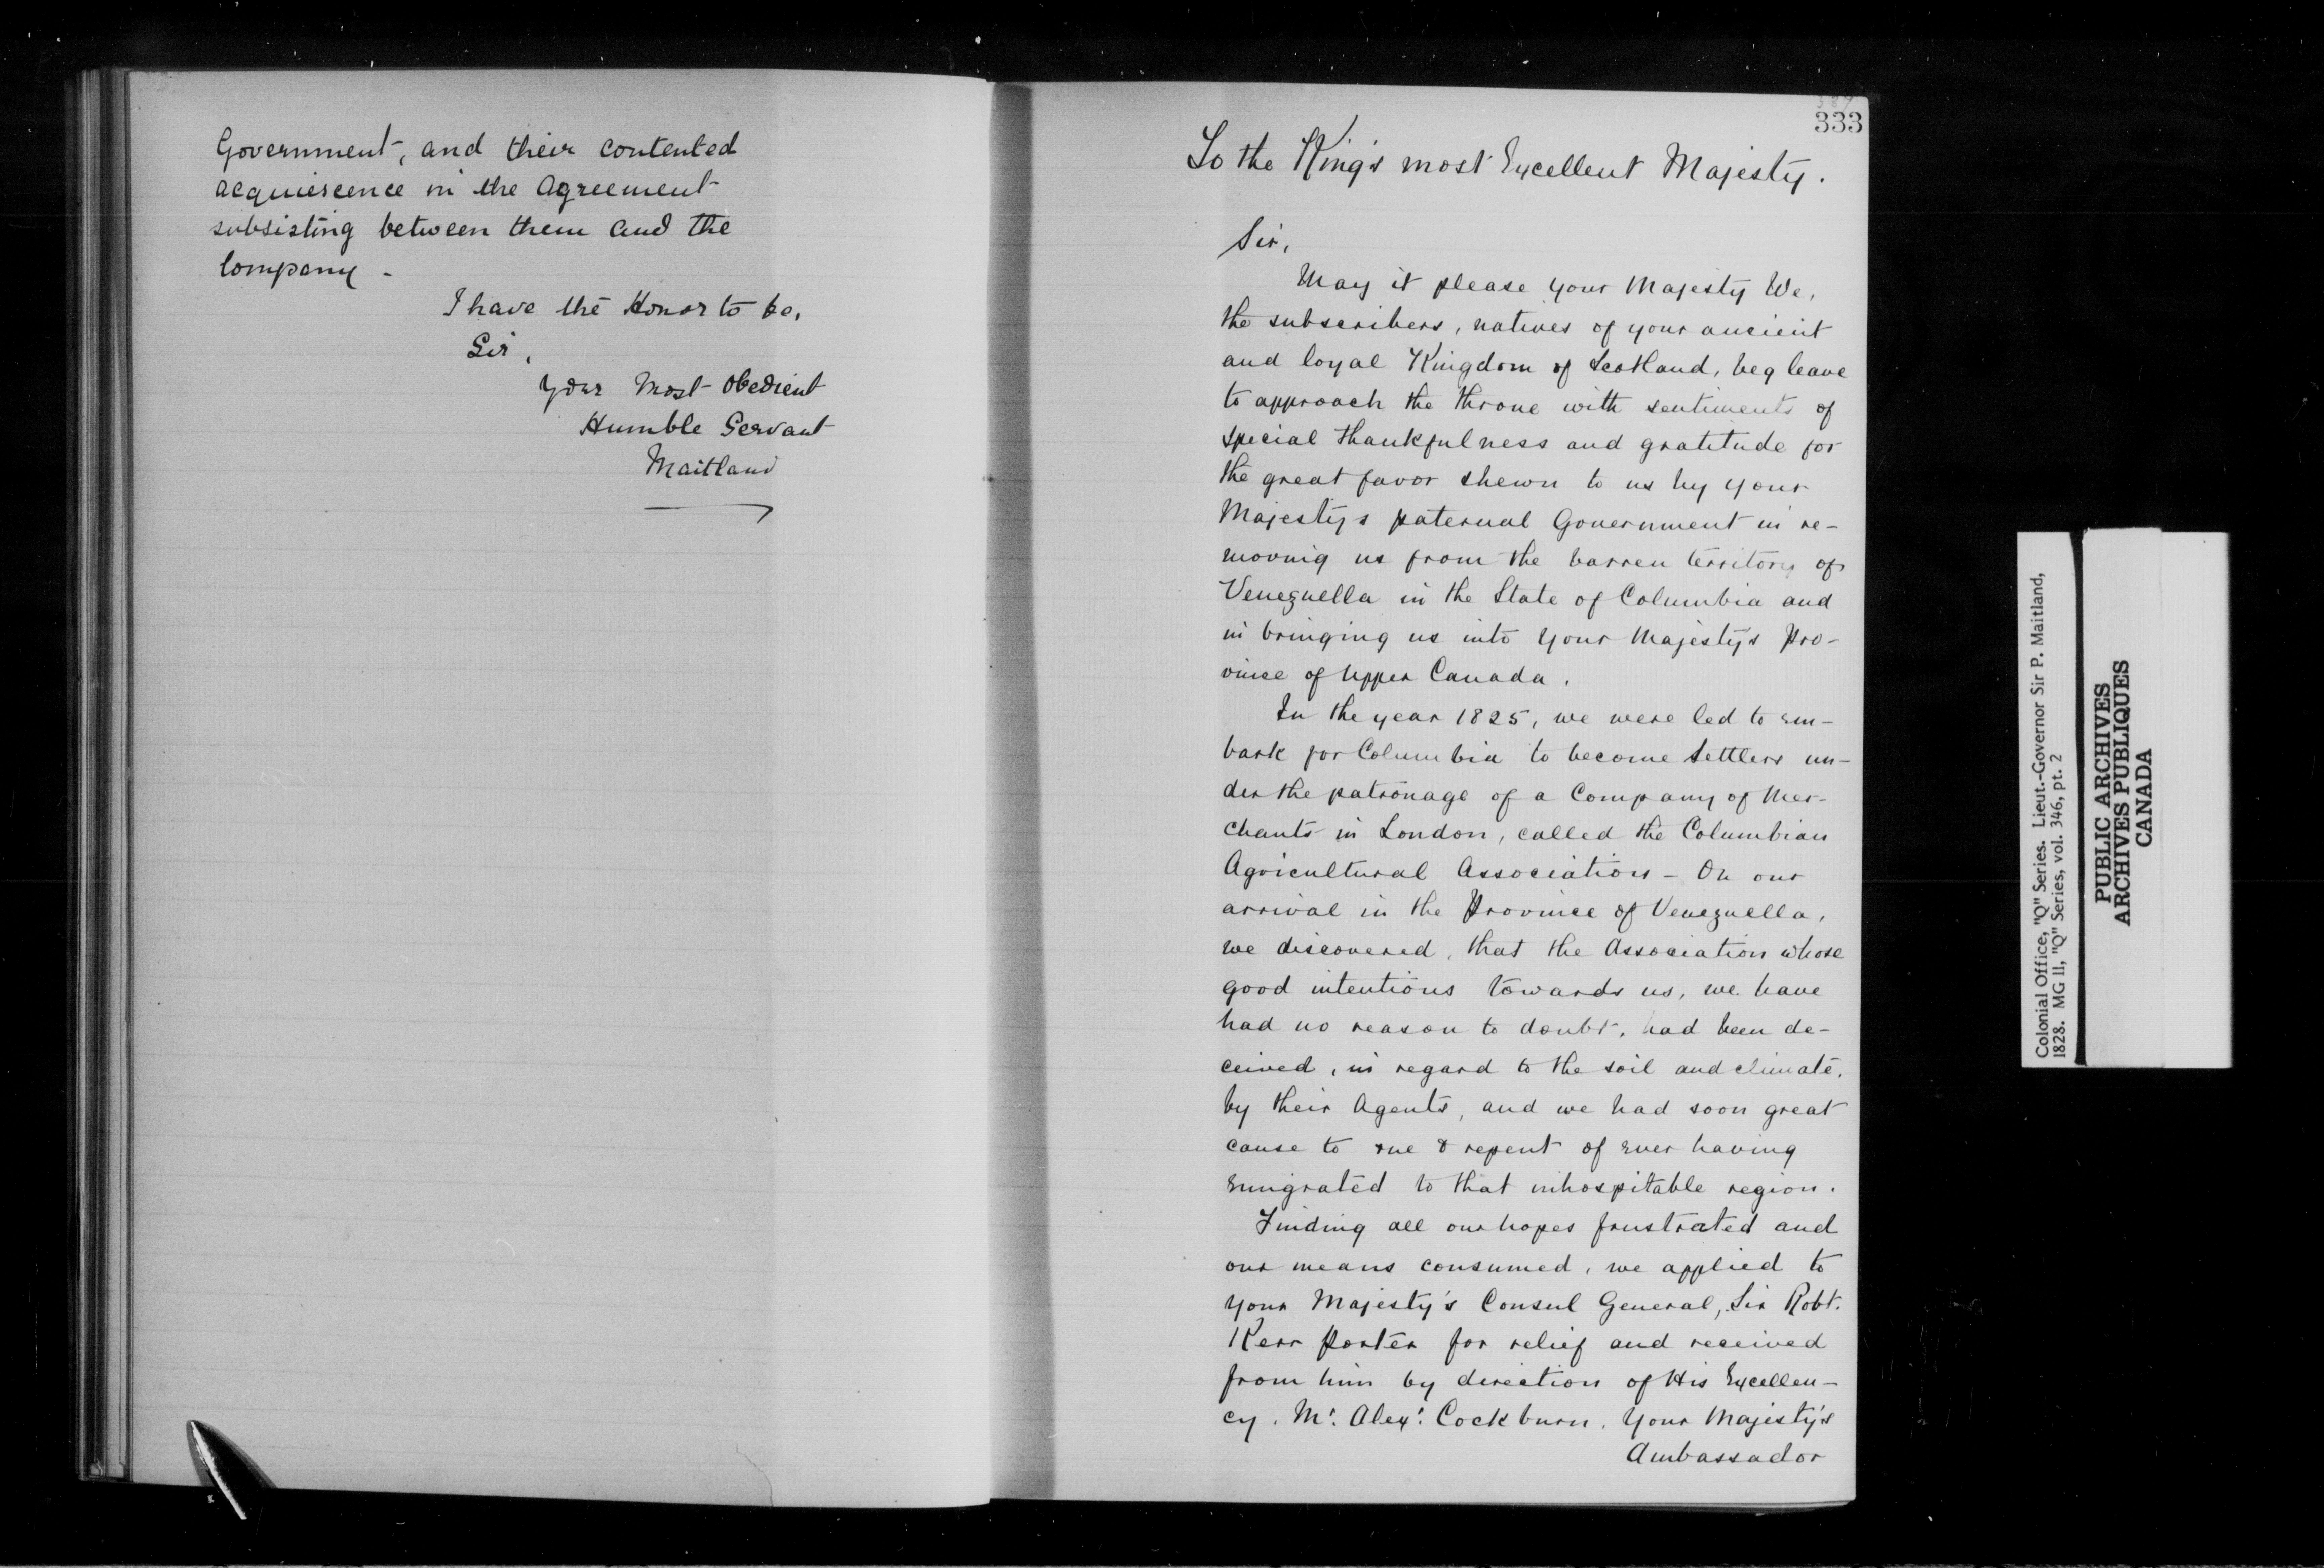 Government, and their contented
acquiescence in the Agreement
subsisting between them and the
Company -
I have the Honor to be,
Sir,
Your Most Obedient
Humble Servant
Maitland
333
To the King's most Excellent Majesty.
Sir,
May it please your Majesty We,
the subscribers, natives of your ancient
and loyal Kingdom of Scotland, beg leave
to approach the throne with sentiments of
special thankfulness and gratitude for
the great favor shewn to us by your
Majesty's paternal Government in re-
moving us from the barren territory of
Venezuella in the State of Columbia and
in bringing us into your Majesty's Pro-
vince of Upper Canada.
In the year 1825, we were led to em-
bark for Columbia to become Settlers un-
der the patronage of a Company of Mer-
chants in London, called the Columbian
Agricultural Association - On our
arrival in the Province of Venezuella,
we discovered, that the Association whose
good intentions towards us, we have
had no reason to doubt, had been de-
ceived, in regard to the soil and climate,
by their Agents, and we had soon great
cause to rue & repent of ever having
emigrated to that inhospitable region.
Finding all our hopes frustrated and
our means consumed, we applied to
your Majesty's Consul General, Sir Robt.
Kerr Porter for relief and received
from him by direction of His Excellen-
cy. Mr. Alexr. Cockburn. Your Majesty's
Ambassador
Colonial Office, "Q" Series. Lieut.-Governor Sir P. Maitland,
1828. MG 11, "Q" Series, vol. 346, pt. 2
PUBLIC ARCHIVES
ARCHIVES PUBLIQUES
CANADA